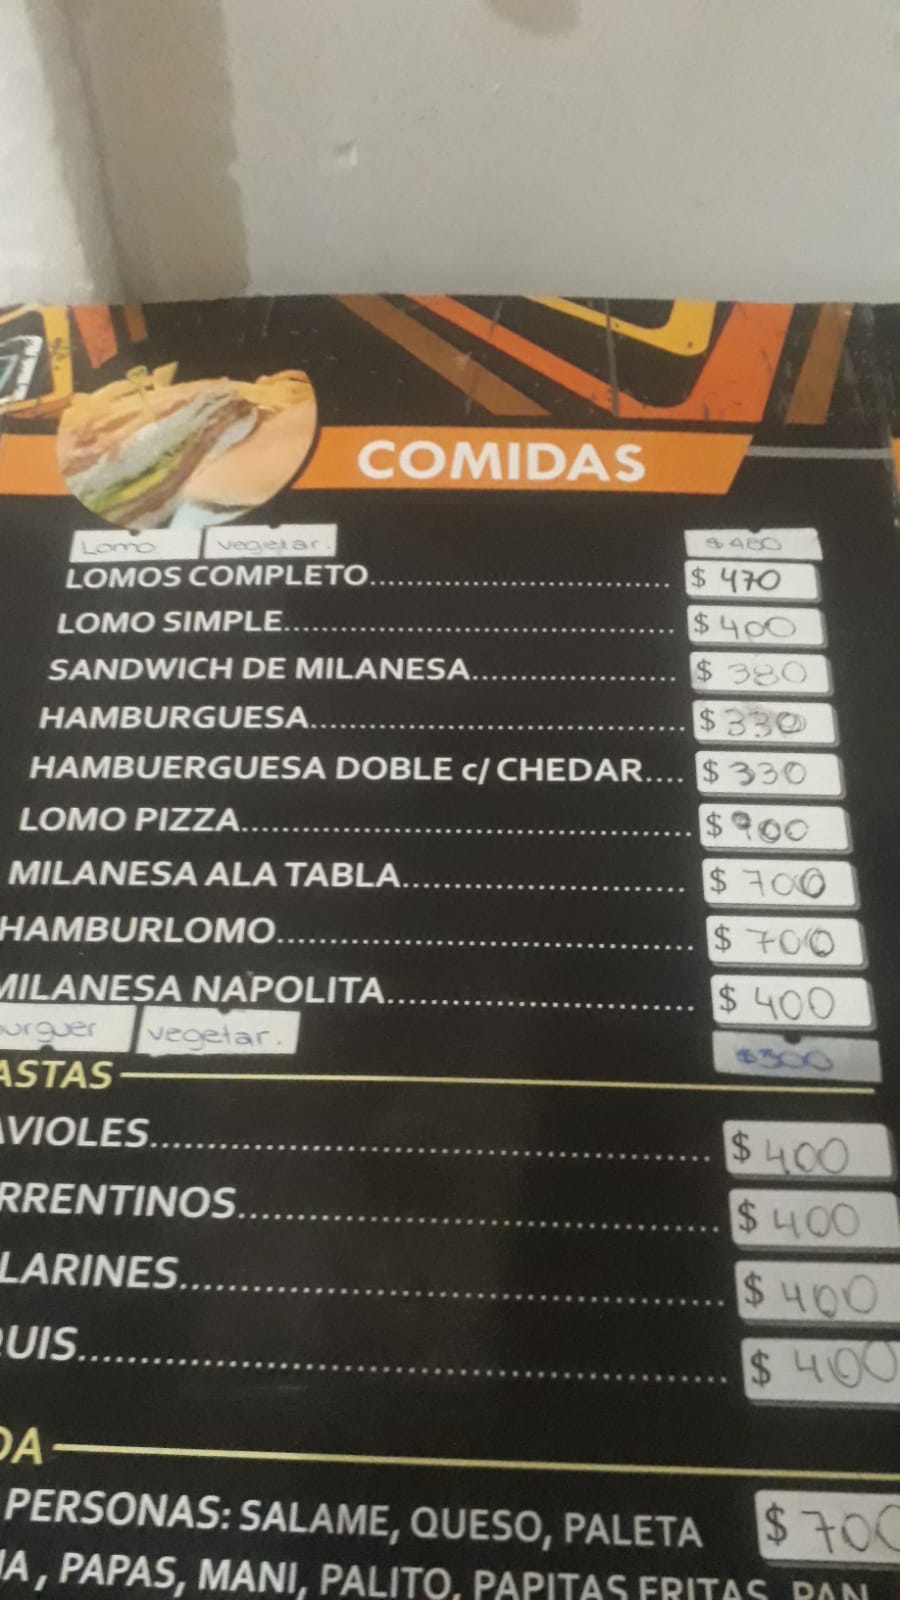 COMIDAS
Lomo vegetar. $450
LOMOS COMPLETO.................................. $ 470
LOMO SIMPLE............................................ $ 400
SANDWICH DE MILANESA...................... $ 380
HAMBURGUESA......................................... $ 330
HAMBUERGUESA DOBLE c/ CHEDAR.... $ 330
LOMO PIZZA................................................. $ 900
MILANESA ALA TABLA............................... $ 700
HAMBURLOMO........................................... $ 700
MILANESA NAPOLITA................................ $ 400
burguer vegetar. $300
ASTAS
AVIOLES....................................................... $ 400
RRENTINOS.............................................. $ 400
LARINES.................................................... $ 400
QUIS............................................................ $ 400
DA
PERSONAS: SALAME, QUESO, PALETA $ 700
IA, PAPAS, MANI, PALITO, PAPITAS FRITAS, PAN